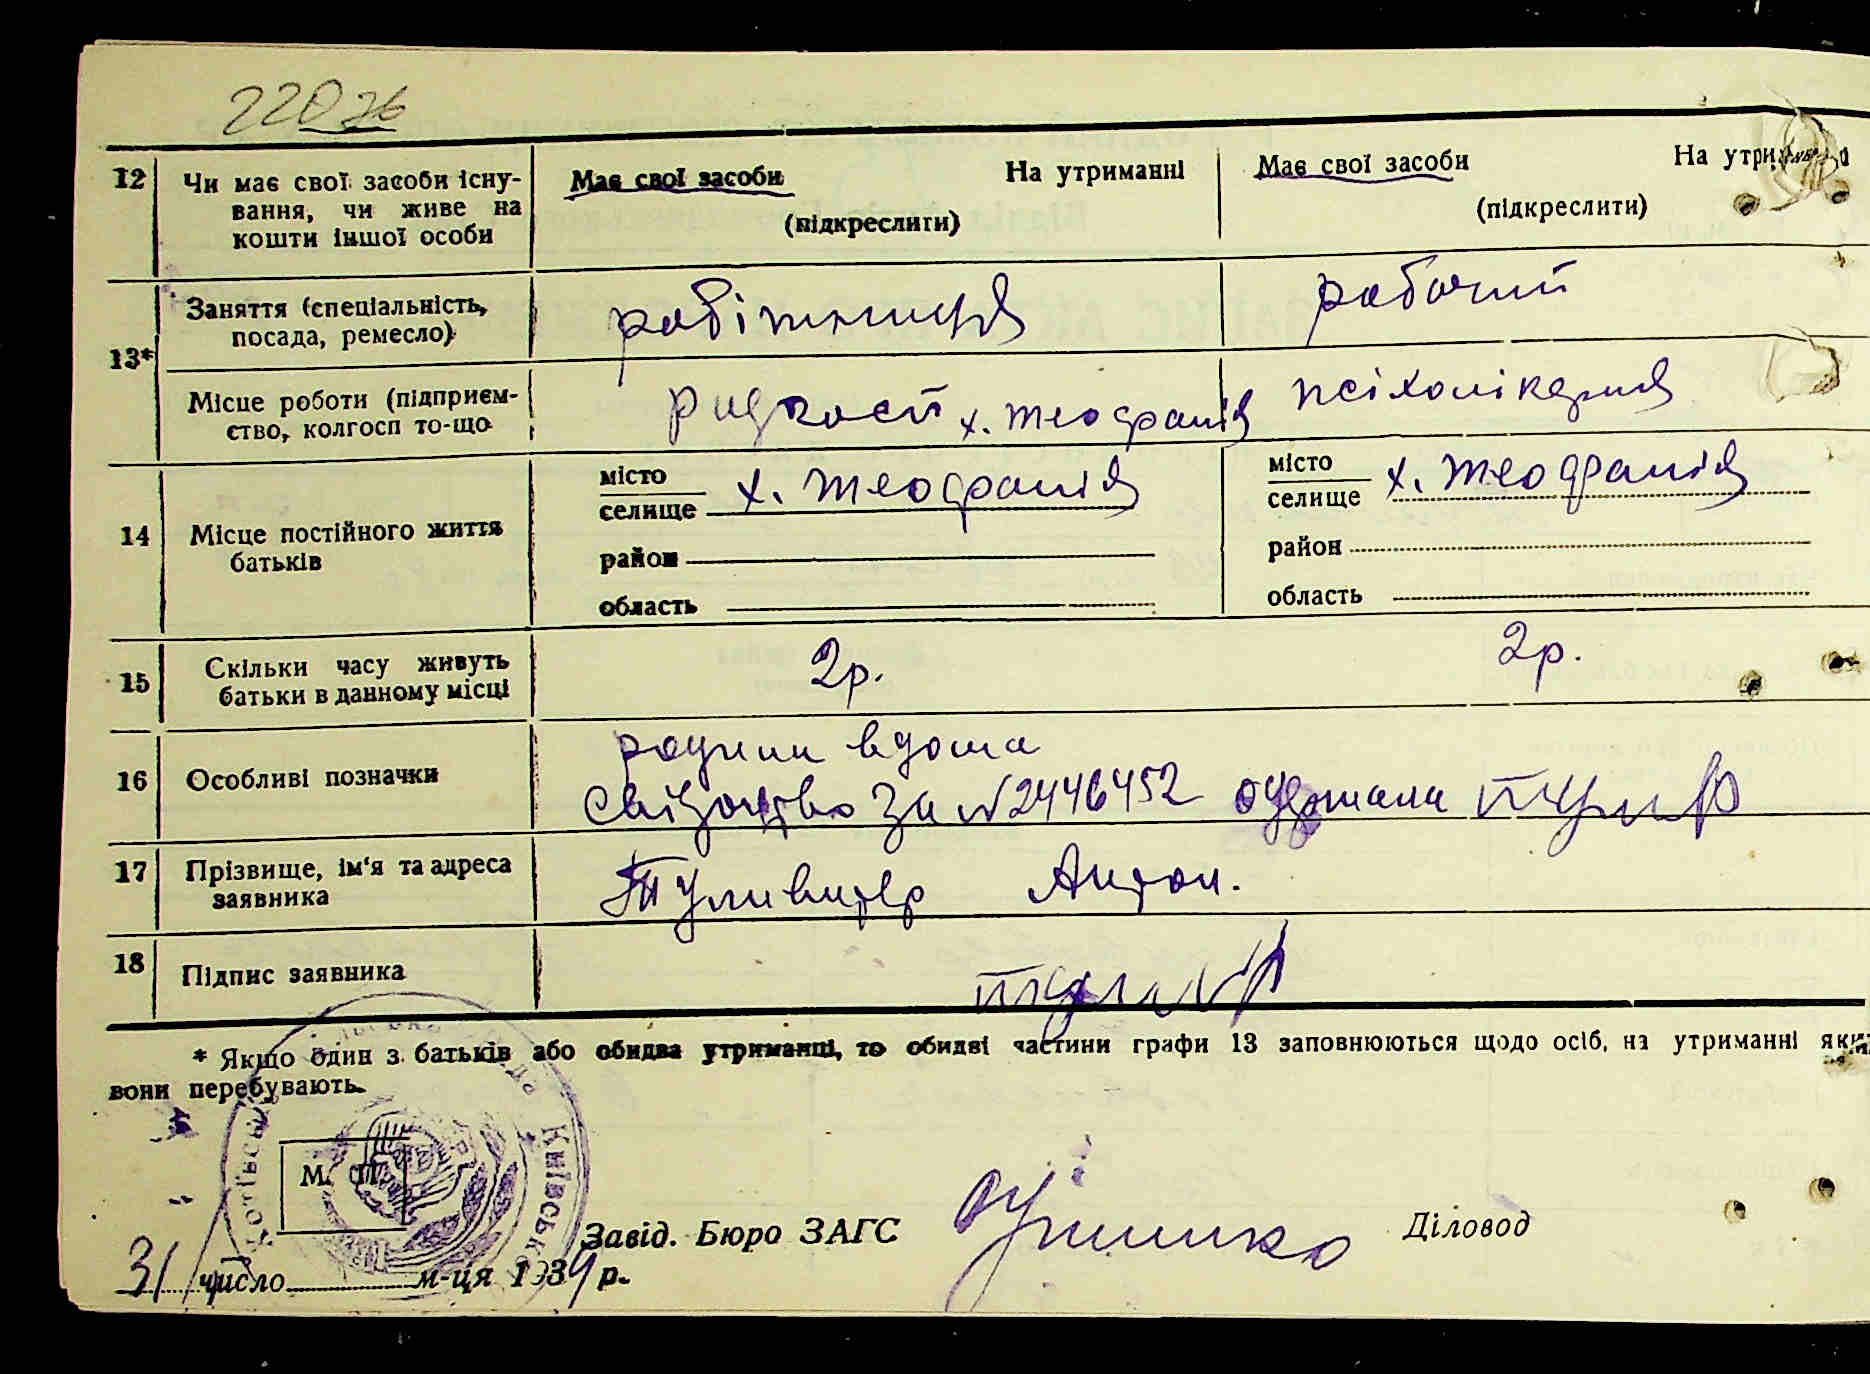 220 зв
12 Чи має свої засоби існу-
вання, чи живе на
кошти іншої особи
Має свої засоби На утриманні
(підкреслити)
Має свої засоби На утри
(підкреслити)
13*
Заняття (спеціальність,
посада, ремесло)
робітниця
рабочий
Місце роботи (підприєм-
ство, колгосп то-що
х. Теофанія
психолікарня
14 Місце постійного життя
батьків
місто
селище х. Теофанія
район
область
місто
селище х. Теофанія
район
область
15 Скільки часу живуть
батьки в данному місці
2р.
2р.
16 Особливі позначки
родини вдома
свідоцтво за №2446452 одержала
17 Прізвище, ім'я та адреса
заявника
Туливітер Антон.
18 Підпис заявника
* Якщо один з батьків або обидва утриманці, то обидві частини графи 13 заповнюються щодо осіб, на утриманні яких
вони перебувають.
М. П.
Київськ
Завід. Бюро ЗАГС
Діловод
31/ число м-ця 1939 р.